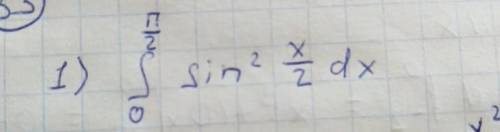 1) ∫₀^(π/2) sin² x/2 dx